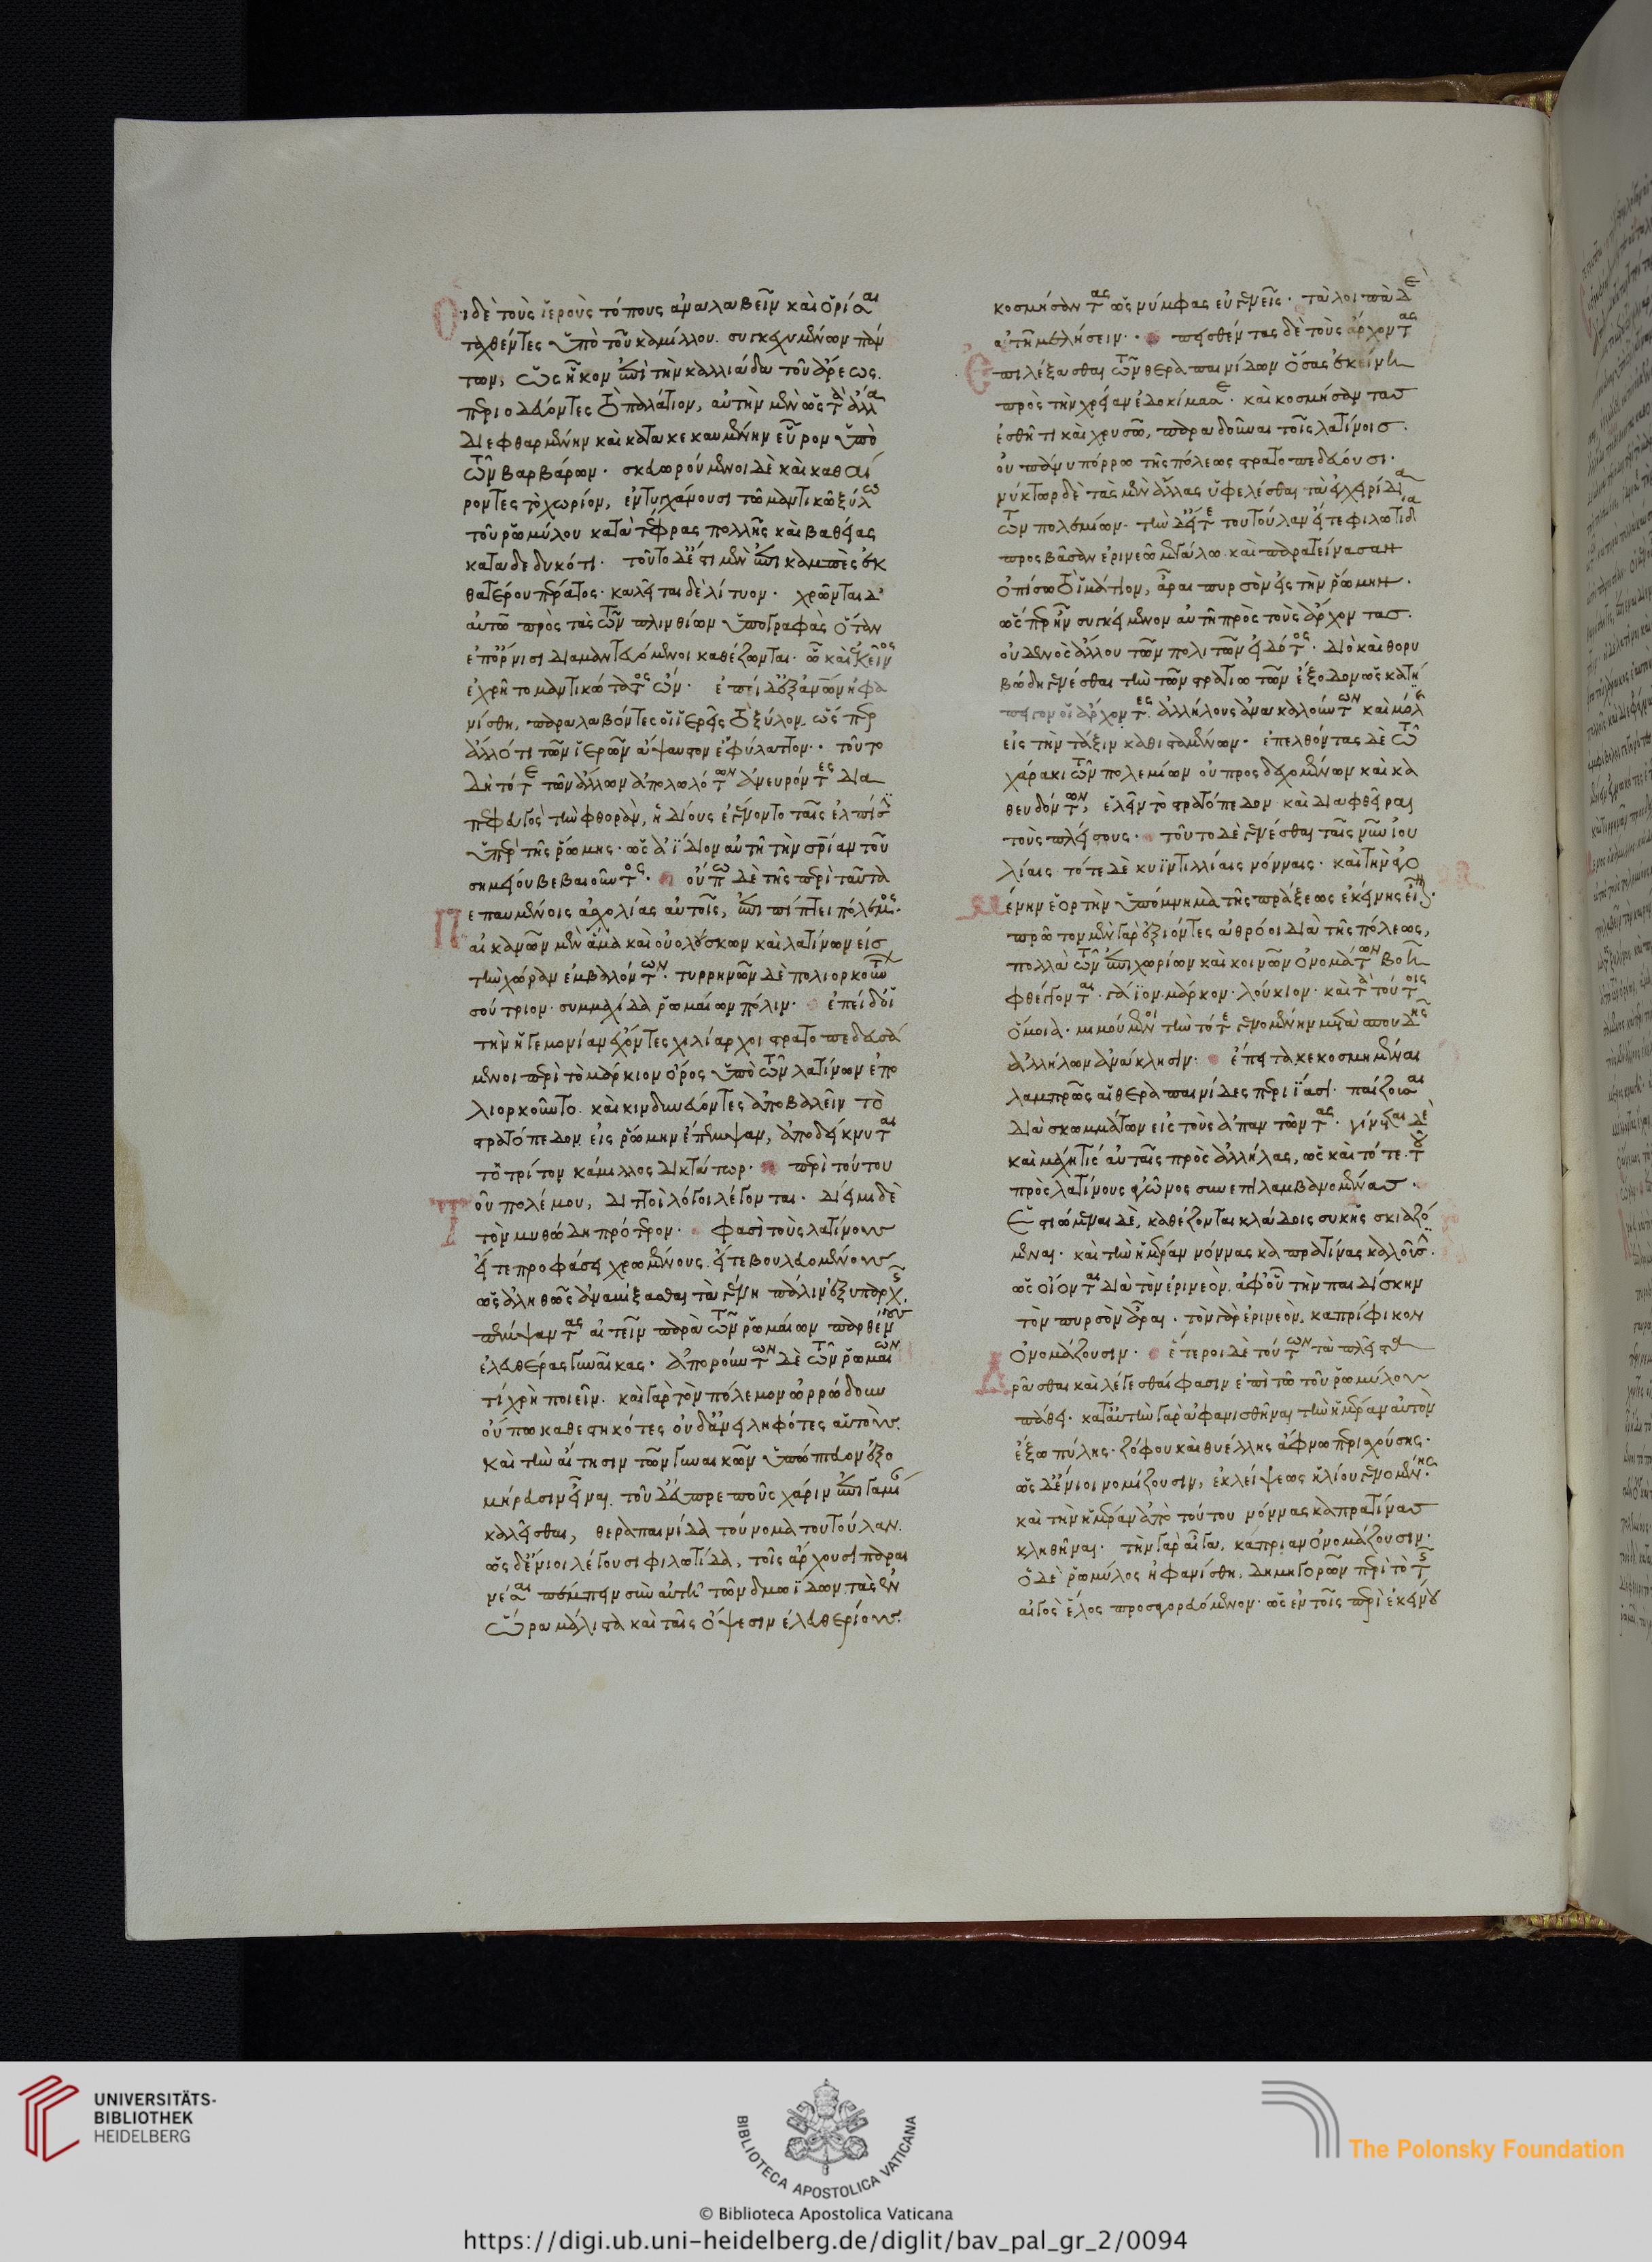 Οἱ δὲ τοὺς ἱεροὺς τόπους ἀναλαβεῖν καὶ ὁρίσαι
ταχθέντες ὑπὸ τοῦ καμίλλου. συγκεχυμένων πάν
των, ὡς ἧκον ἐπὶ τὴν καλλιάδα τοῦ ἄρεως.
περιοδεύοντες τὸ παλάτιον, αὐτὴν μὲν ὡς τὰ ἄλλα
διεφθαρμένην καὶ κατακεκαυμένην εὗρον ὑπὸ
τῶν βαρβάρων. σκευωρούμενοι δὲ καὶ καθαί
ροντες τὸ χωρίον, ἐντυγχάνουσι τῶ μαντικῶ ξύλω
τοῦ ῥωμύλου κατὰ τέφρας πολλῆς καὶ βαθείας
καταδεδυκότι. τοῦτο δ' ἔστι μὲν ἐπικαμπὲς ἐκ
θατέρου πέρατος. καλεῖται δὲ λίτυον. χρῶνται δ'
αὐτῶ πρὸς τὰς τῶν πλινθίων ὑπογραφὰς ὅταν
ἐπ' ὄρνισι διαμαντευόμενοι καθέζωνται. ᾧ καὶ κεῖνος
ἐχρῆτο μαντικώτατος ὤν. ἐπεὶ δ' ἐξ ἀνθρώπων ἠφα
νίσθη, παραλαβόντες οἱ ἱερεῖς τὸ ξύλον. ὥσπερ
ἄλλό τι τῶν ἱερῶν ἄψαυστον ἐφύλαττον. τοῦτο
δὴ τότε τῶν ἄλλων ἀπολωλότων ἀνευρόντες δια
πεφευγὸς τὴν φθορὰν, ἡδίους ἐγένοντο ταῖς ἐλπίσιν
ὑπὲρ τῆς ῥώμης. ὡς ἀΐδιον αὐτῆ τὴν σωτηρίαν τοῦ
σημείου βεβαιοῦντος. οὔπω δὲ τῆς περὶ ταῦτα
Πεπαυμένοις ἀσχολίας αὐτοῖς, ἐπιπίπτει πόλεμος.
αἰκανῶν μὲν ἅμα καὶ οὐολούσκων καὶ λατίνων εἰσ
τὴν χώραν ἐμβαλόντων. τυρρηνῶν δὲ πολιορκούντων
σούτριον. συμμαχίδα ῥωμαίων πόλιν. ἐπεὶ δ' οἱ
τὴν ἡγεμονίαν ἔχοντες χιλίαρχοι στρατοπεδευσά
μενοι περὶ τὸ μάρκιον ὄρος ὑπὸ τῶν λατίνων ἐπο
λιορκοῦντο. καὶ κινδυνεύοντες ἀποβαλεῖν τὸ
στρατόπεδον εἰς ῥώμην ἔπεμψαν, ἀποδείκνυται
τὸ τρίτον κάμιλλος δικτάτωρ. περὶ τούτου
Τοῦ πολέμου, διττοὶ λόγοι λέγονται. δίειμι δὲ
τὸν μυθώδη πρότερον. φασὶ τοὺς λατίνους
εἴτε προφάσει χρωμένους. εἴτε βουλευομένους
ὡς ἀληθῶς ἀναμίξασθαι τὰ γένη πάλιν ἐξ ὑπαρχῆς.
πέμψαντας αἰτεῖν παρὰ τῶν ῥωμαίων παρθένους
ἐλευθέρας γυναῖκας. ἀπορούντων δὲ τῶν ῥωμαίων
τί χρὴ ποιεῖν. καὶ γὰρ τὸν πόλεμον ὠρρώδουν
οὔπω καθεστηκότες οὐδ' ἀνειληφότες αὑτοὺς.
καὶ τὴν αἴτησιν τῶν γυναικῶν ὑπώπτευον ἐξο
μήρευσιν εἶναι. τοῦ δ' εὐπρεποῦς χάριν ἐπιγαμί
καλεῖσθαι, θεραπαινίδα τοὔνομα τουτούλαν.
ὡς δ' ἔνιοι λέγουσι φιλωτίδα, τοῖς ἄρχουσι παραι
νέσαι πέμπειν σὺν αὐτῆ τῶν δμωΐδων τὰς ἐν
ὥρα μάλιστα καὶ ταῖς ὄψεσιν ἐλευθερίους.
κοσμήσαντας ὡς νύμφας εὐγενεῖς. τὰ λοιπὰ δὲ
αὐτῆ μελήσειν. πεισθέντας δὲ τοὺς ἄρχοντας
Ἐπιλέξασθαι τῶν θεραπαινίδων ὅσας ἐκείνη
πρὸς τὴν χρείαν ἐδοκίμασε. καὶ κοσμήσαντασ
ἐσθῆτι καὶ χρυσῶ, παραδοῦναι τοῖς λατίνοισ.
οὐ πάνυ πόρρω τῆς πόλεως στρατοπεδεύουσι.
νύκτωρ δὲ τὰς μὲν ἄλλας ὑφελέσθαι τὰ ἐγχειρίδια
τῶν πολεμίων. τὴν δ' εἴτε τουτούλαν εἴτε φιλωτίδα
προσβᾶσαν ἐρινεῶ μεγάλω. καὶ παρατείνασαν
ὀπίσω τὸ ἱμάτιον, ἆραι πυρσὸν εἰς τὴν ῥώμην.
ὥσπερ ἦν συγκείμενον αὐτῆ πρὸς τοὺς ἄρχοντασ.
οὐδενὸς ἄλλου τῶν πολιτῶν εἰδότος. διὸ καὶ θορυ
βώδη γενέσθαι τὴν τῶν στρατιωτῶν ἔξοδον ὡς κατή
πειγον οἱ ἄρχοντες. ἀλλήλους ἀνακαλούντων καὶ μόλις
εἰς τὴν τάξιν καθισταμένων. ἐπελθόντας δὲ τῶ
χάρακι τῶν πολεμίων οὐ προσδεχομένων καὶ κα
θευδόντων, ἑλεῖν τὸ στρατόπεδον καὶ διαφθεῖραι
τοὺς πλείστους. τοῦτο δὲ γενέσθαι ταῖς νῦν ἰου
λίαις τότε δὲ κυϊντιλλίαις νόνναις. καὶ τὴν ἀγο
Μένην ἑορτὴν ὑπόμνημα τῆς πράξεως ἐκείνης εἶναι.
πρῶτον μὲν γὰρ ἐξιόντες ἀθρόοι διὰ τῆς πόλεως,
πολλὰ τῶν ἐπιχωρίων καὶ κοινῶν ὀνομάτων βοῆ
φθέγγονται. γάϊον. μάρκον. λούκιον. καὶ τὰ τούτοις
ὅμοια. μιμούμενοι τὴν τότε γενομένην μετὰ σπουδῆς
ἀλλήλων ἀνάκλησιν: ἔπειτα κεκοσμημέναι
λαμπρῶς αἱ θεραπαινίδες περιΐασι. παίζουσαι
διὰ σκωμμάτων εἰς τοὺς ἀπαντῶντας. γίνεται δὲ
καὶ μάχη τίς αὐταῖς πρὸς ἀλλήλας, ὡς καὶ τότε τοῦ
πρὸς λατίνους ἀγῶνος συνεπιλαμβανομέναισ.
Ἑστιώμεναι δὲ, καθέζονται κλάδοις συκῆς σκιαζό
μεναι. καὶ τὴν ἡμέραν νόννας καπρατίνας καλοῦσιν.
ὡς οἴονται διὰ τὸν ἐρινεὸν. ἀφ' οὗ τὴν παιδίσκην
τὸν πυρσὸν ἆραι. τὸν γὰρ ἐρινεὸν, καπρίφικον
ὀνομάζουσιν. ἕτεροι δὲ τούτων τὰ πλεῖστα
Δρᾶσθαι καὶ λέγεσθαί φασιν ἐπὶ τῶ τοῦ ῥωμύλου
πάθει. κατ' αὐτὴν γὰρ ἀφανισθῆναι τὴν ἡμέραν αὐτὸν
ἔξω πύλης. ζόφου καὶ θυέλλης ἄφνω περισχούσης.
ὡς δ' ἔνιοι νομίζουσιν, ἐκλείψεως ἡλίου γενομένης.
καὶ τὴν ἡμέραν ἀπὸ τούτου νόννας καπρατίνασ
κληθῆναι. τὴν γὰρ αἶγα, κάπραν ὀνομάζουσιν.
ὁ δὲ ῥωμύλος ἠφανίσθη. δημηγορῶν περὶ τὸ τῆς
αἰγὸς ἕλος προσαγορευόμενον. ὡς ἐν τοῖς περὶ ἐκείνου
UNIVERSITÄTS-
BIBLIOTHEK
HEIDELBERG
BIBLIOTECA APOSTOLICA VATICANA
The Polonsky Foundation
© Biblioteca Apostolica Vaticana
https://digi.ub.uni-heidelberg.de/diglit/bav_pal_gr_2/0094